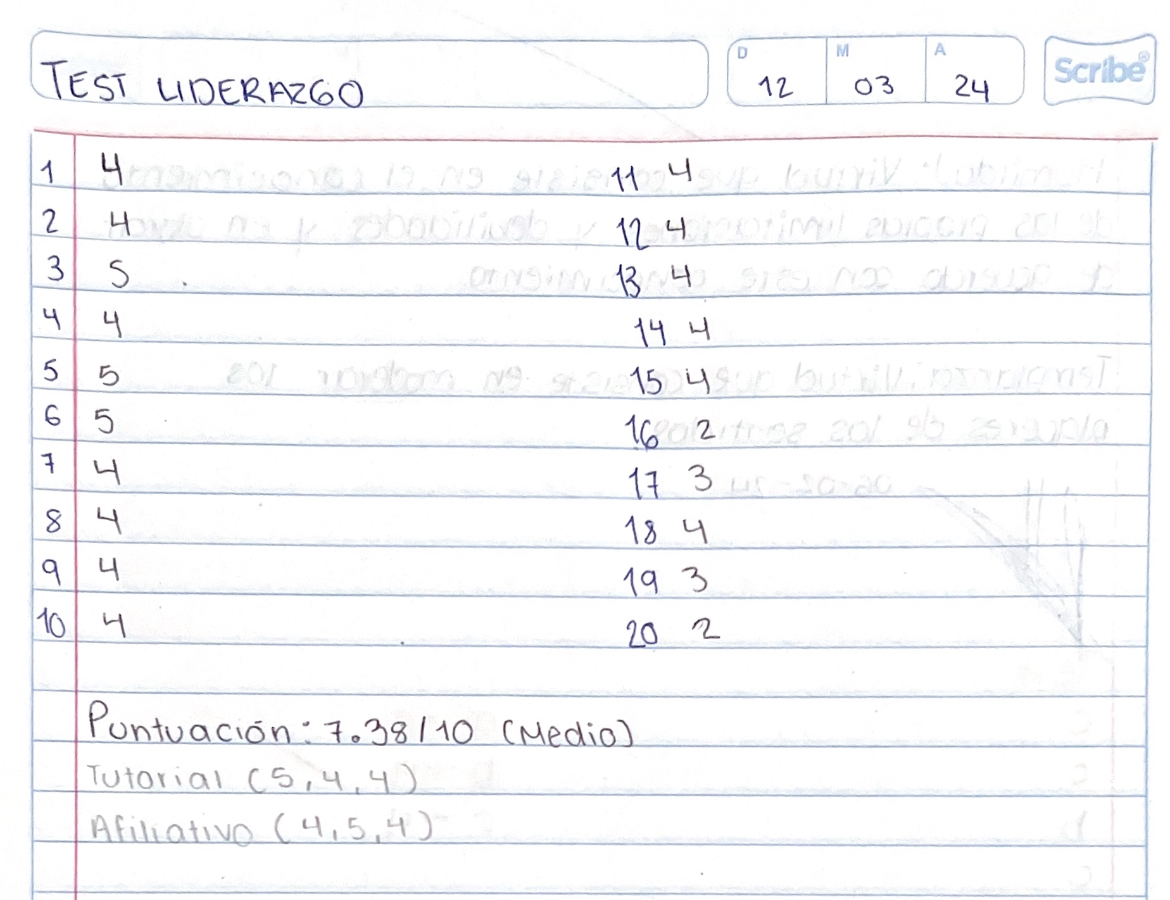 TEST LIDERAZGO
D 12 M 03 A 24
Scribe®
1 4 11 4
2 4 12 4
3 5 13 4
4 4 14 4
5 5 15 4
6 5 16 2
7 4 17 3
8 4 18 4
9 4 19 3
10 4 20 2
Puntuación: 7.38/10 (Medio)
Tutorial (5, 4, 4)
Afiliativo (4, 5, 4)